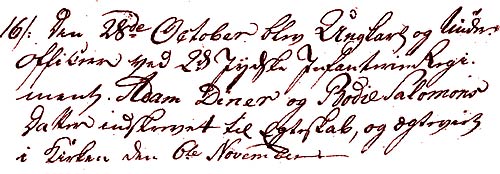 16/: Den 28de October blev Ungkarl og Under
Officeer ved 2d Jydske Infanterie Regi-
ment. Adam Diner og Bodil Salomons
Datter indskrevet til Egteskab, og egteviet
i Kirken den 6te November